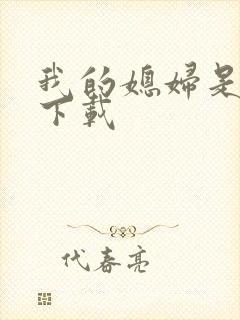 我的媳妇是
下载
代春亮